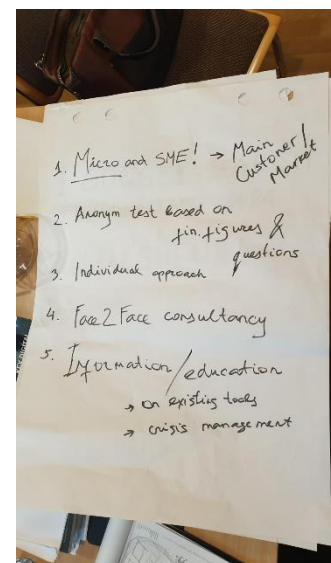 1. Micro and SME! → Main
Customer/
Market
2. Anonym test based on
fin. figures &
questions
3. Individual approach
4. Face2Face consultancy
5. Information/education
→ on existing tools
→ crisis management